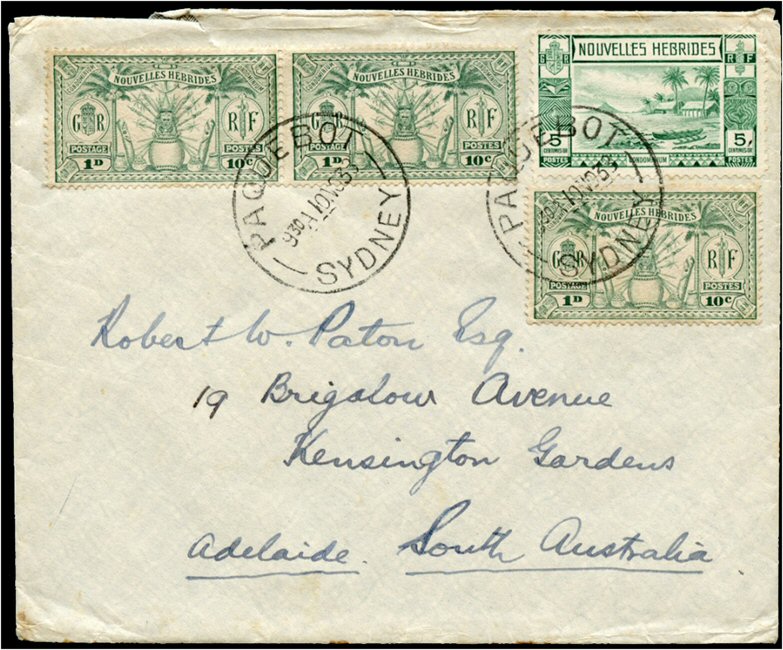 NOUVELLES HEBRIDES
GR RF
POSTAGE POSTES
1D 10c
NOUVELLES HEBRIDES
GR RF
POSTAGE POSTES
1D 10c
NOUVELLES HEBRIDES
GR RF
5 5
CENTIMES OR CENTIMES OR
POSTES CONDOMINIUM POSTES
NOUVELLES HEBRIDES
GR RF
POSTAGE POSTES
1D 10c
PAQUEBOT
SYDNEY
PAQUEBOT
SYDNEY
Robert W. Paton Esq.
19 Brigalow Avenue
Kensington Gardens
Adelaide. South Australia